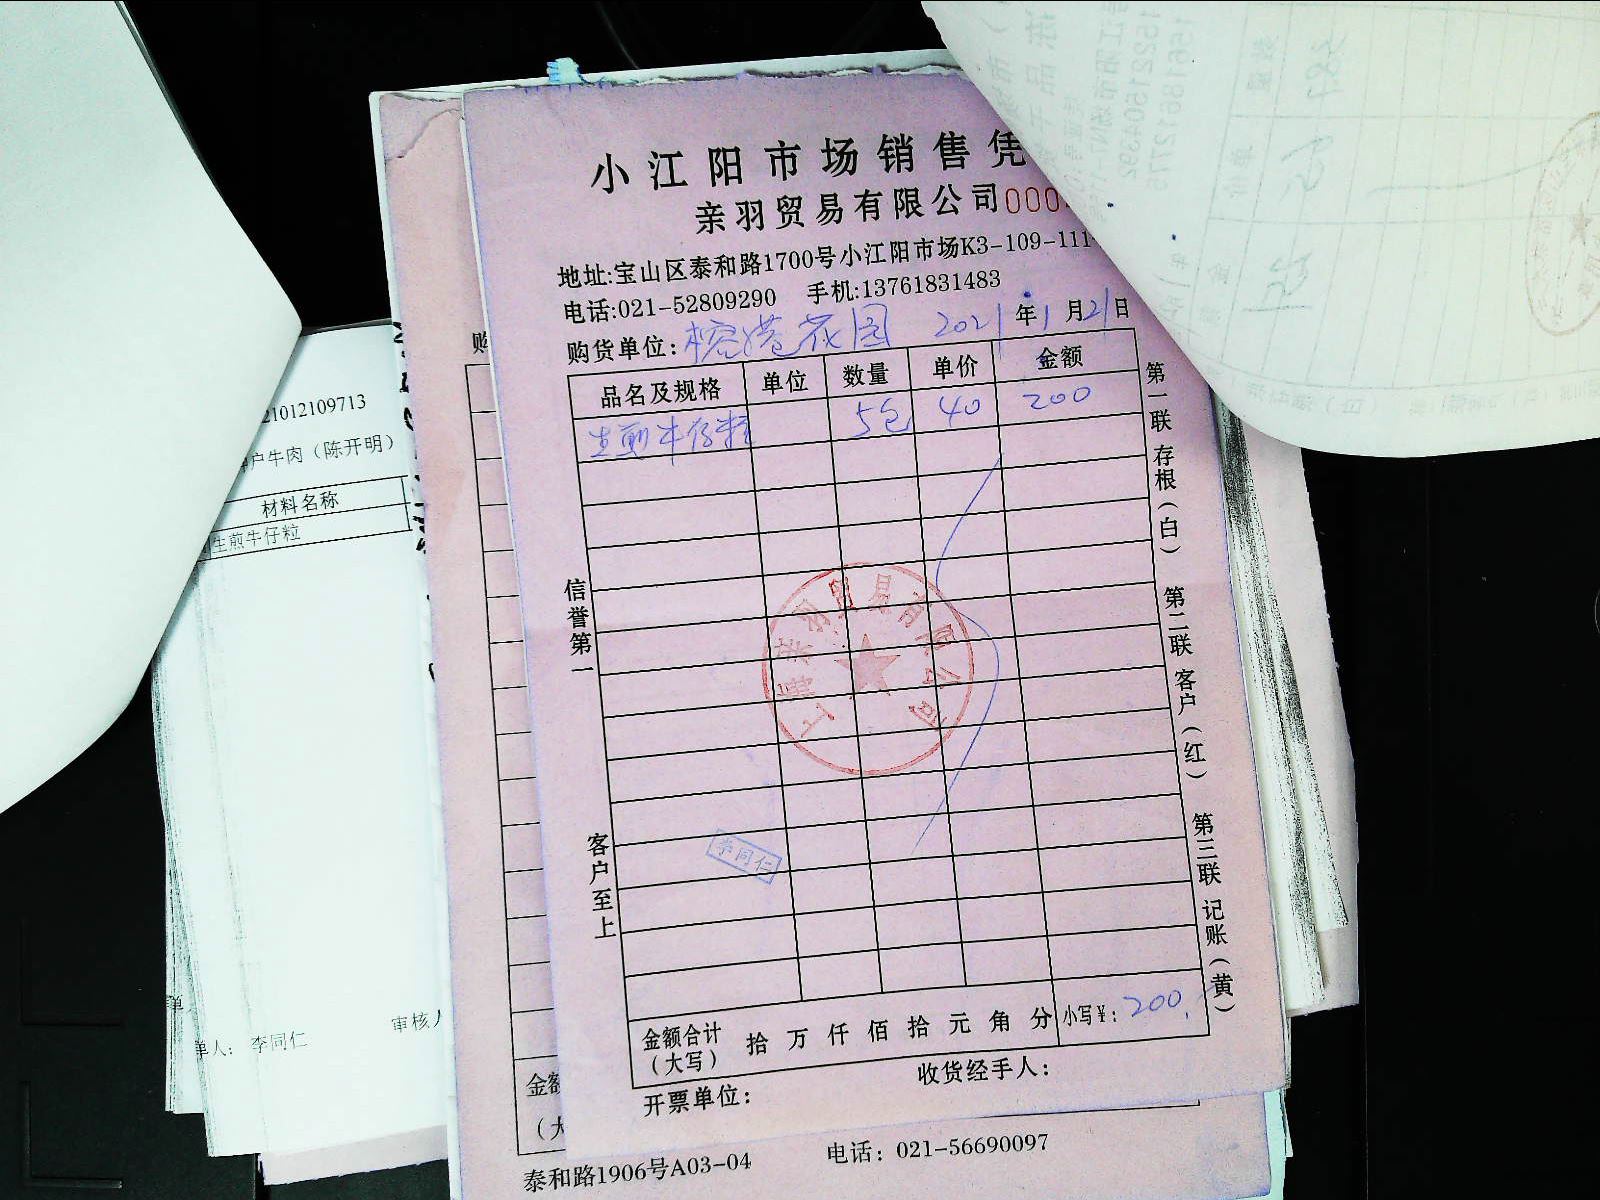 小江阳市场销售凭
亲羽贸易有限公司000
地址:宝山区泰和路1700号小江阳市场K3-109-111
电话:021-52809290 手机:13761831483
购货单位: 榕港花园 2021年1月21日
品名及规格 单位 数量 单价 金额
生煎牛仔粒 5包 40 200
信誉第一
客户至上
第一联 存根(白) 第二联 客户(红) 第三联 记账(黄)
上海亲羽贸易有限公司
李同仁
金额合计(大写) 拾万仟佰拾元角分 小写¥: 200.
开票单位: 收货经手人:
泰和路1906号A03-04 电话: 021-56690097
购
金额
21012109713
户牛肉(陈开明)
材料名称
生煎牛仔粒
单人: 李同仁 审核人
15221504392
15618612775
数量
单价